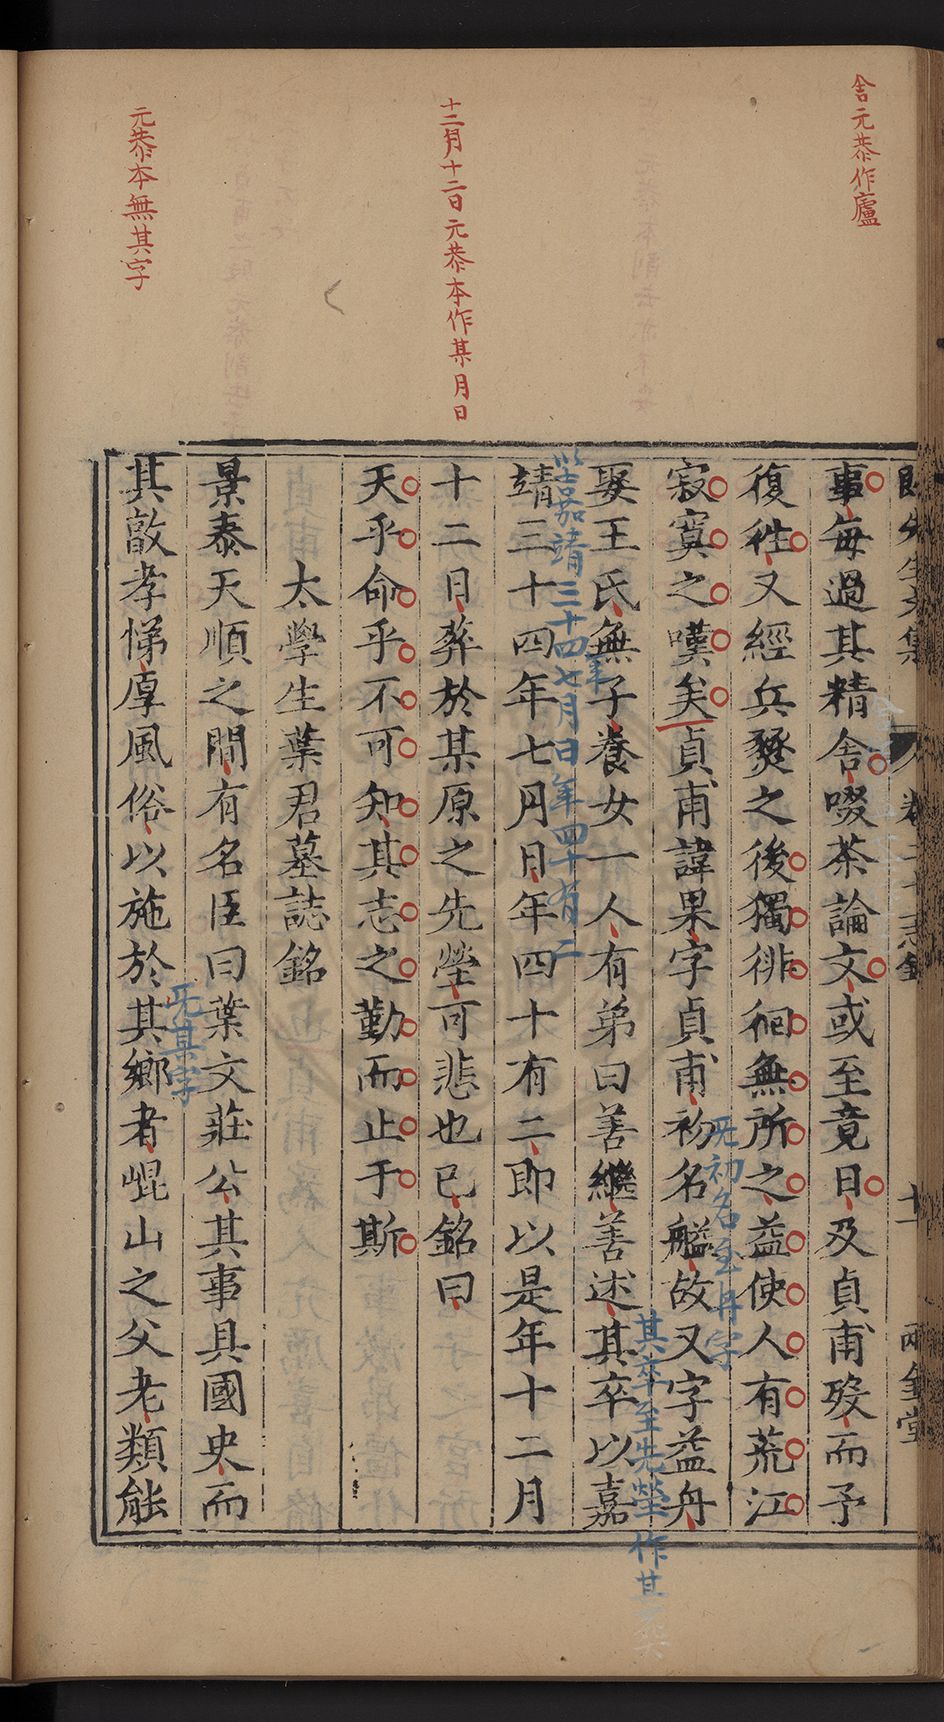 舍元恭作廬
十二月十二日元恭本作某月日
元恭本無其字
事每過其精舍啜茶論文或至竟日及貞甫歿而予
復徃又經兵燹之後獨徘徊無所之益使人有荒江
寂寞之嘆矣貞甫諱果字貞甫初名艦故又字益舟
無初名至舟字
娶王氏無子養女一人有弟曰善繼善述其卒以嘉
靖三十四年七月日年四十有二即以是年十二月
十二日葬於某原之先塋可悲也已銘曰
天乎命乎不可知其志之勤而止于斯
太學生葉君墓誌銘
景泰天順之間有名臣曰葉文莊公其事具國史而
其敦孝悌厚風俗以施於其鄉者崐山之父老類能
旡其字